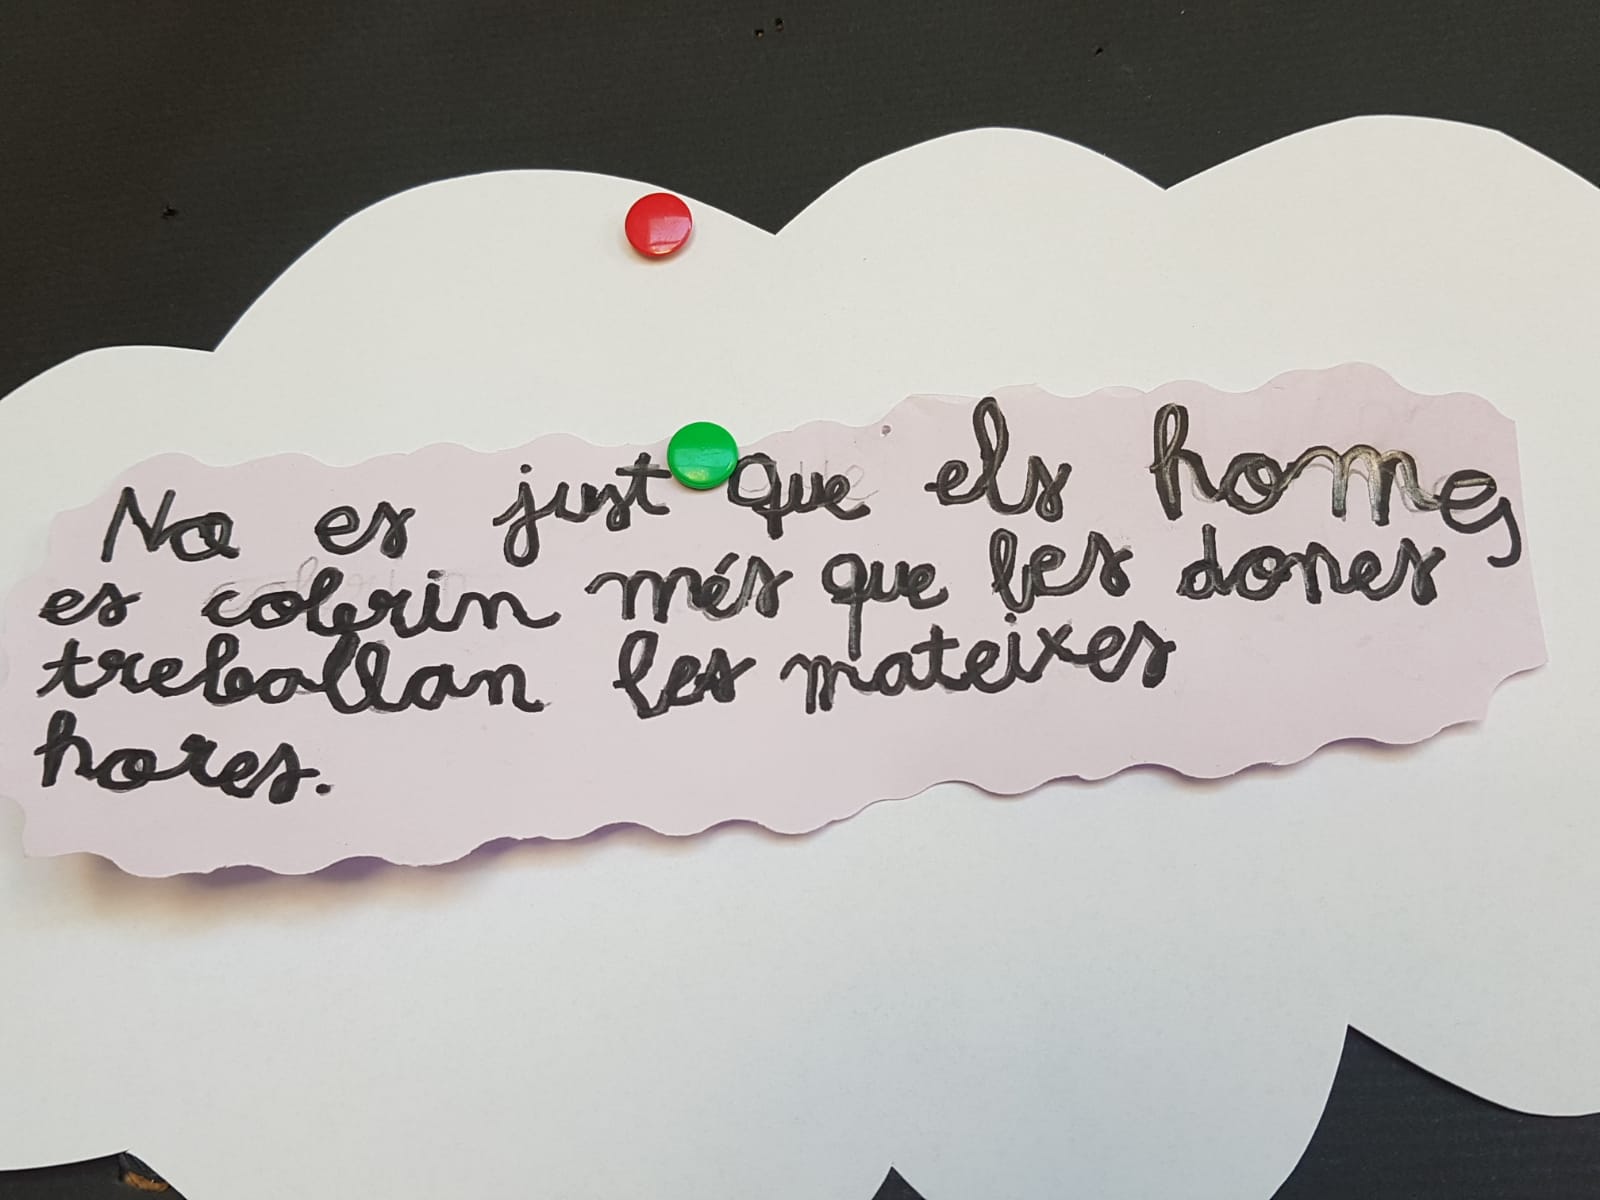 No es just que els homes
es coberin més que les dones
treballan les mateixes
hores.